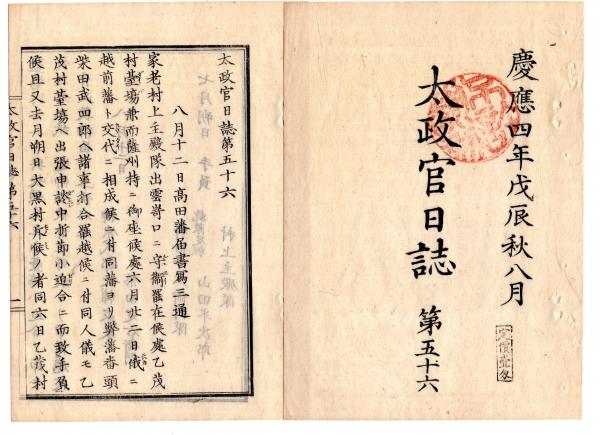 慶應四年戊辰秋八月
太政官日誌 第五十六
定價壹匁
太政官日誌第五十六
八月十二日髙田藩届書寫三通
家老村上主殿隊出雲嵜口ニ守衞罷在候處乙茂
村臺場兼而薩州持ニ御座候處六月廿二日俄ニ
越前藩ト交代ニ相成候ニ付同藩ヨリ弊藩番頭
柴田武四郎ヘ諸事打合罷越候ニ付同人儀モ乙
茂村臺場ヘ出張申談中折節小迫合ニ而致手負
候且又去月朔日大黒村斥候ノ者同六日乙茂村
太政官日誌第五十六
一